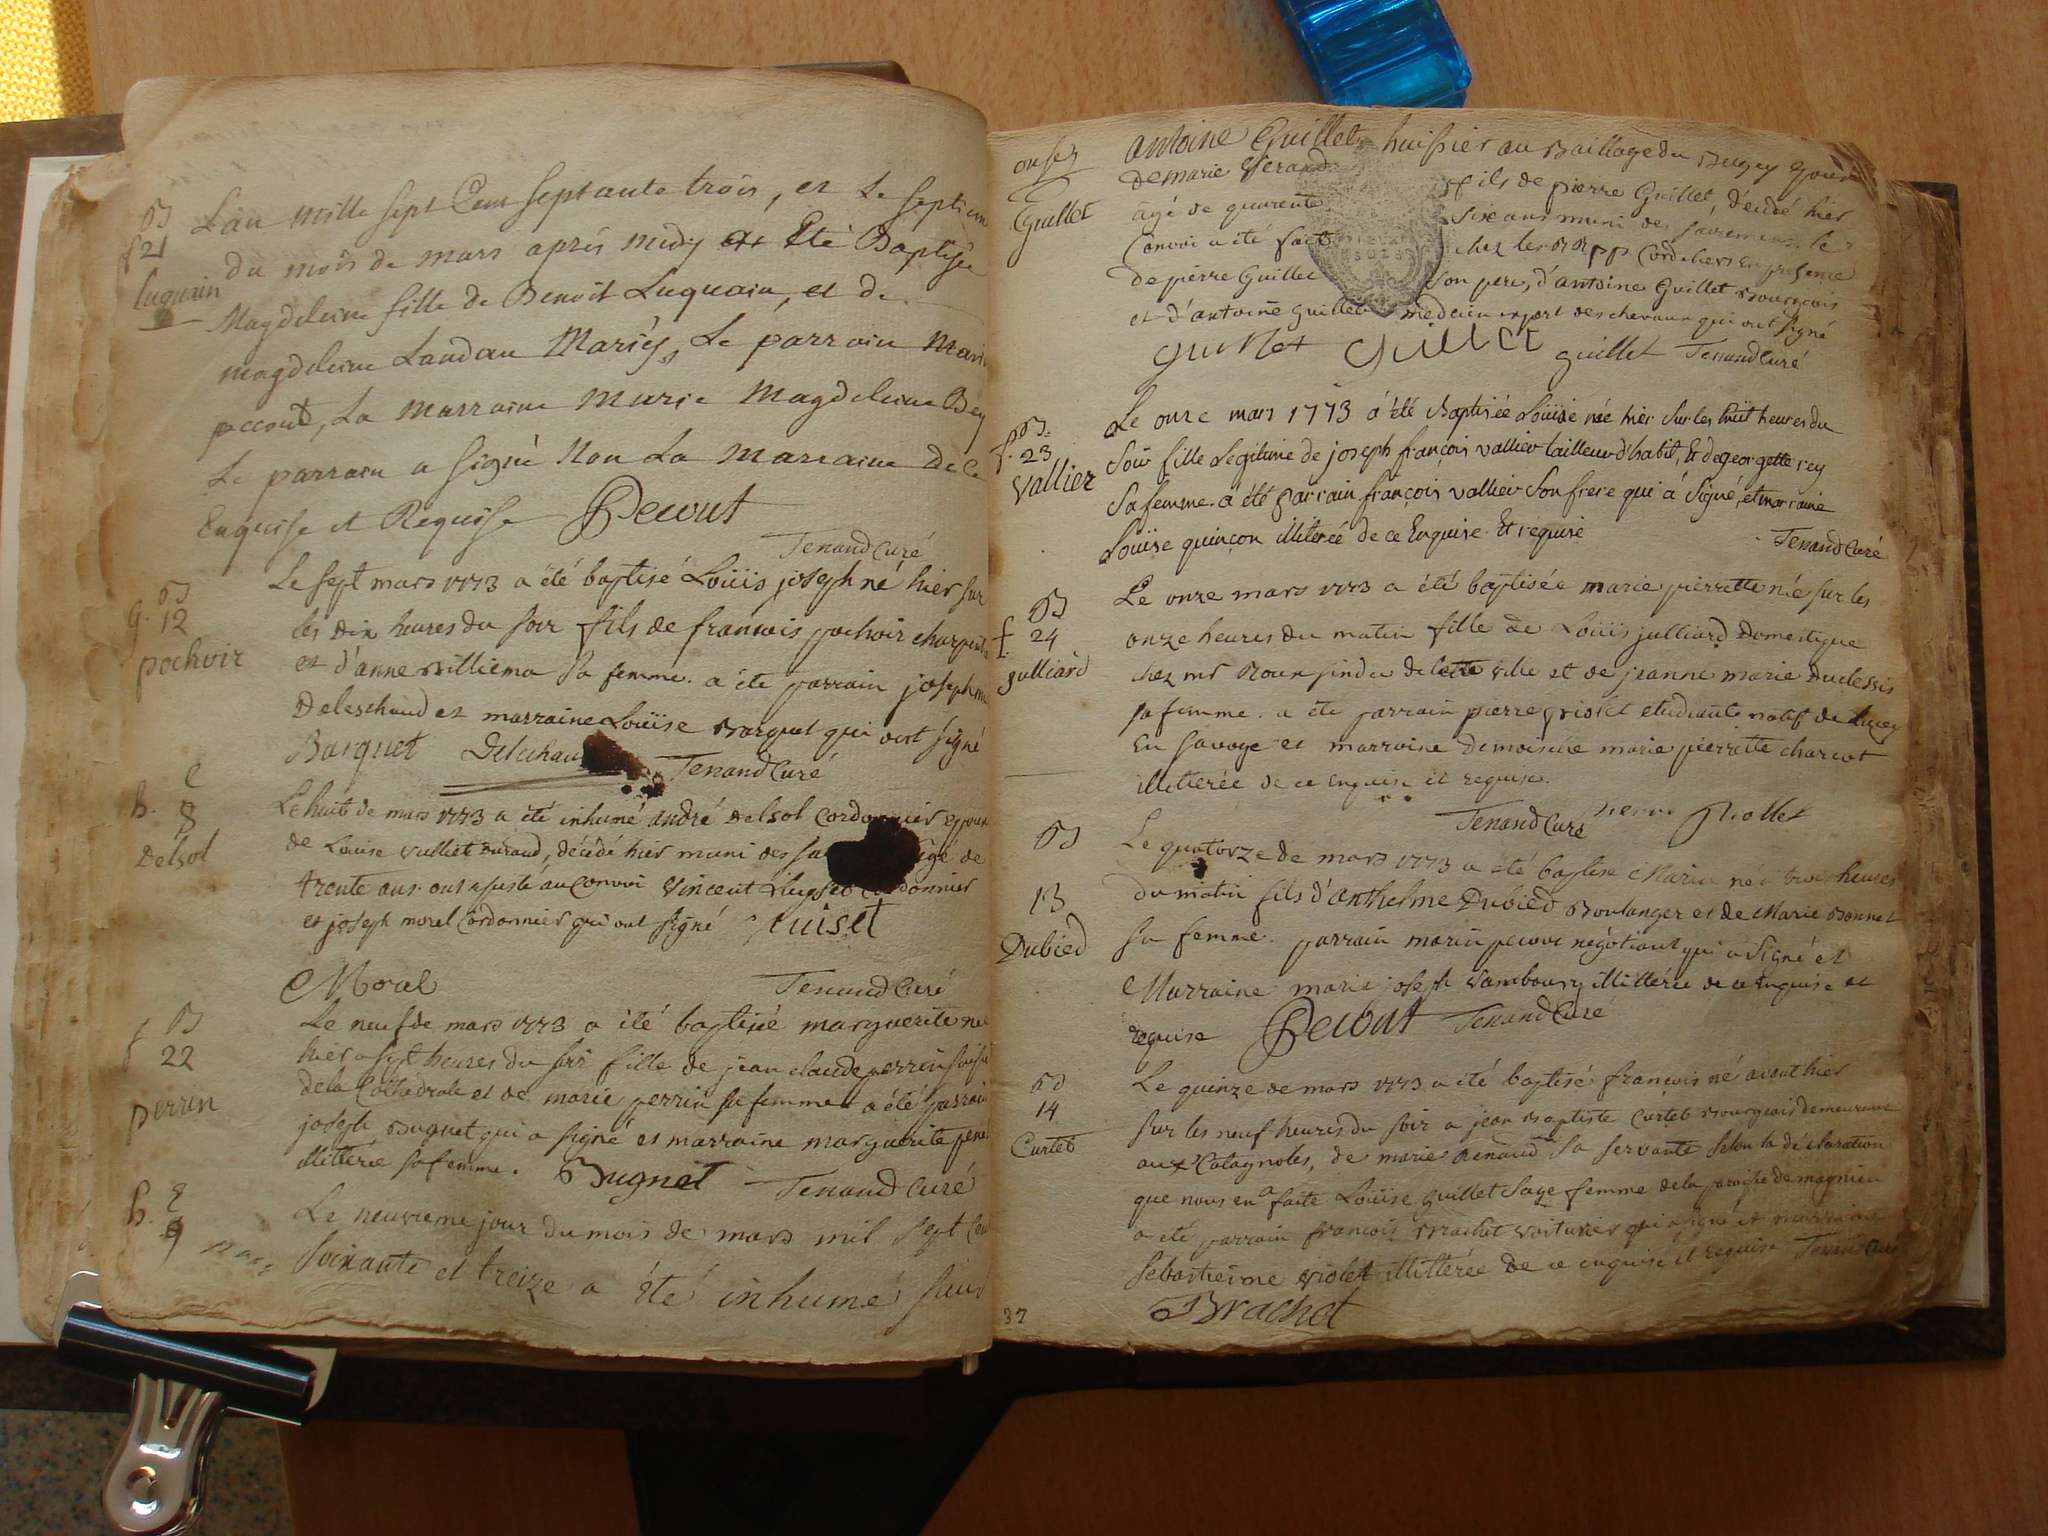 B
f 21
Luquain
L'an mille sept Cent septante trois, et Le septieme
du mois de mars aprés midy a Eté Baptisée
Magdeleine fille de Benoit Luquain, et de
magdeleine Landau Mariés, Le parrain Marin
pecout, La marraine Marie Magdeleine Bey
Le parrain a signé Non La marraine De Ce
Enquise et Requise Pecout
Tenand Curé
B
g. 12
pochoir
Le sept mars 1773 a été baptisé Loüis joseph né hier sur
les dix heures du soir fils de francois pochoir charpentier
et d'anne Williema sa femme. a été parrain joseph
Deleschaud et marraine Loüise Barquet qui ont signé
Barquet Delechau Tenand Curé
h. 8
Delsol
Le huit de mars 1773 a été inhumé andré Delsol Cordonnier epoux
de Louise Vulliet Durand, décédé hier muni des sa agé de
trente ans. ont assisté au Convoi Vincent Cordonnier
et joseph morel Cordonnier qui ont signé Puiset
Morel Tenand Curé
f B
22
perrin
Le neuf de mars 1773 a été baptisée marguerite née
hier a sept heures du soir fille de jean claude perrin
de la Cathédrale et de marie perrin sa femme a été parrain
joseph Bugnet qui a signé et marraine marguerite
illittérée sa femme. Bugnet Tenand Curé
h. 9
Le neuvieme jour du mois de mars mil sept Cent
soixante et treize a été inhumé sieur
Guillet
antoine Guillet huissier au Baillage du Bugey Epoux
de marie Verand fils de pierre Guillet, décédé hier
agé de quarente six ans muni des sacrements. le
Convoi a été fait chez les RR pp Cordeliers en presence
de pierre Guillet son pere, d'antoine Guillet Bourgeois
et d'antoine Guillet medecin expert des chevaux qui ont signé
Guillet Guillet guillet Tenand Curé
B.
f. 23
Vallier
Le onze mars 1773 a été Baptisée Loüise née hier sur les huit heures du
soir fille Légitime de joseph françois vallier tailleur d'habit, Et de georgette rey
sa femme. a été parrain françois vallier son frere qui a signé, et marraine
Loüise quinçon illiterée de ce Enquise Et requise Tenand Curé
B
f. 24
julliard
Le onze mars 1773 a été baptisée marie pierrette née sur les
onze heures du matin fille de Loüis julliard Domestique
chez mr Roux sindic de cette ville et de jeanne marie Duclessis
sa femme. a été parrain pierre friolet etudiant natif de Lucey
En savoye et marraine demoiselle marie pierrette charcot
illitterée de ce Enquise et requise.
Tenand Curé
B
13
Dubied
Le quatorze de mars 1773 a été baptisé Marin né a trois heures
du matin fils d'anthelme Dubied Boulanger et de Marie Bonnet
sa femme. parrain marin pecout négotiant qui a signé et
Marraine marie joseph Vambourg illittérée de ce Enquise et
requise Pecout Tenand Curé
B
14
Curtet
Le quinze de mars 1773 a été baptisé francois né avant hier
sur les neuf heures du soir a jean Baptiste Curtet Bourgeois demeurant
aux Catagnoles, de marie Renaud sa servante selon la déclaration
que nous en a faite Loüise Guillet Sage femme de la paroisse de magnieu
a été parrain francois Brachet voiturier qui a signé et marraine
sebastienne violet illitterée de ce enquise et requise Tenand Curé
Brachet
37